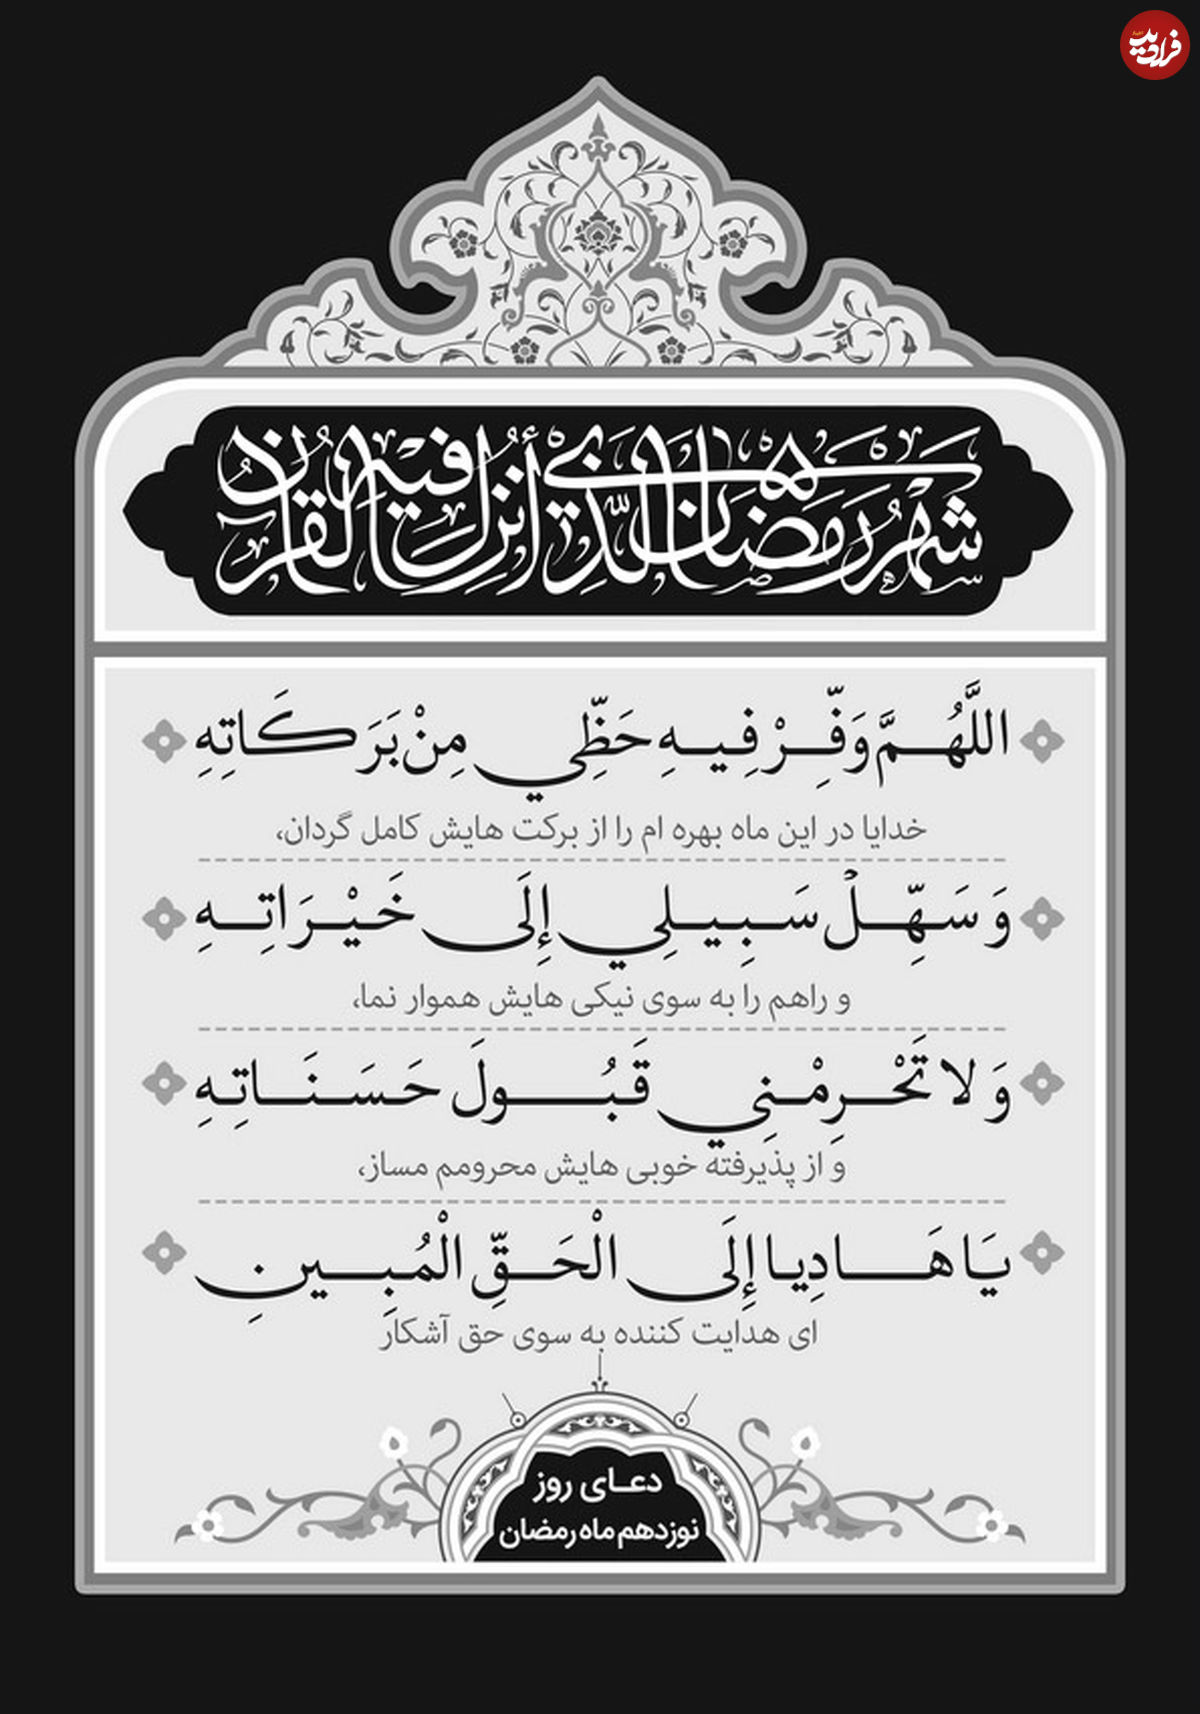 فرادید
شهر رمضان الذي أنزل فيه القرآن
اللَّهُمَّ وَفِّرْ فِيهِ حَظِّي مِنْ بَرَكَاتِهِ
خدایا در این ماه بهره ام را از برکت هایش کامل گردان،
وَ سَهِّلْ سَبِيلِي إِلَى خَيْرَاتِهِ
و راهم را به سوی نیکی هایش هموار نما،
وَ لا تَحْرِمْنِي قَبُولَ حَسَنَاتِهِ
و از پذیرفته خوبی هایش محرومم مساز،
يَا هَادِيا إِلَى الْحَقِّ الْمُبِينِ
ای هدایت کننده به سوی حق آشکار
دعای روز
نوزدهم ماه رمضان